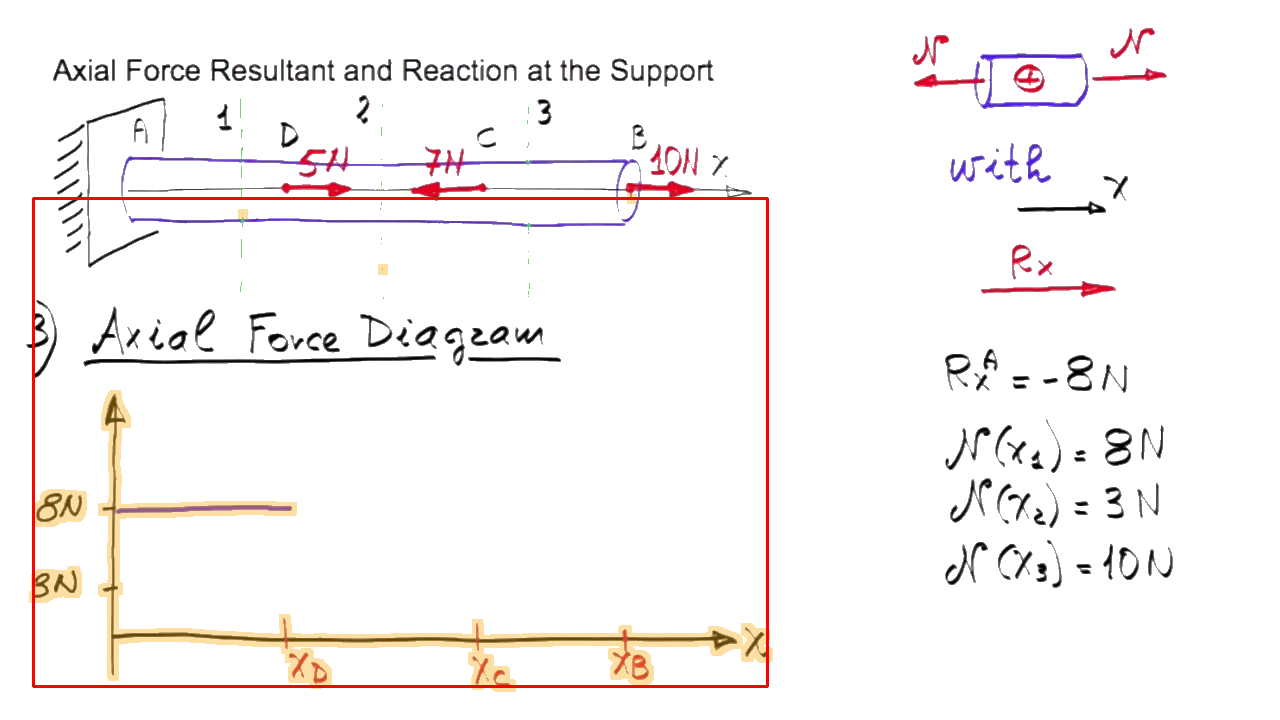 Axial Force Resultant and Reaction at the Support
A 1 D 2 C 3 B
5N 7N 10N x
3) Axial Force Diagram
8N
3N
x_D x_C x_B x
N + N
with
x
Rx
Rx^A = -8N
N(x_1) = 8N
N(x_2) = 3N
N(x_3) = 10N